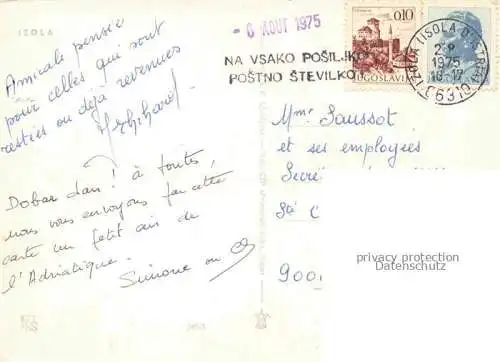 IZOLA
- 6 AOUT 1975
0,10
JUGOSLAVIJA
NA VSAKO POŠILJKO
POŠTNO ŠTEVILKO
IZOLA (ISOLA D'ISTRIA)
1975
10-17
66310
Amicale pensée
pour celles qui sont
resties ou déjà revenues
Dobar dan! à toutes,
nous vous envoyons par cette
carte un petit air de
l'Adriatique.
Simone
Mme Saussot
et ses employées
Secré
Sté C
900
privacy protection
Datenschutz